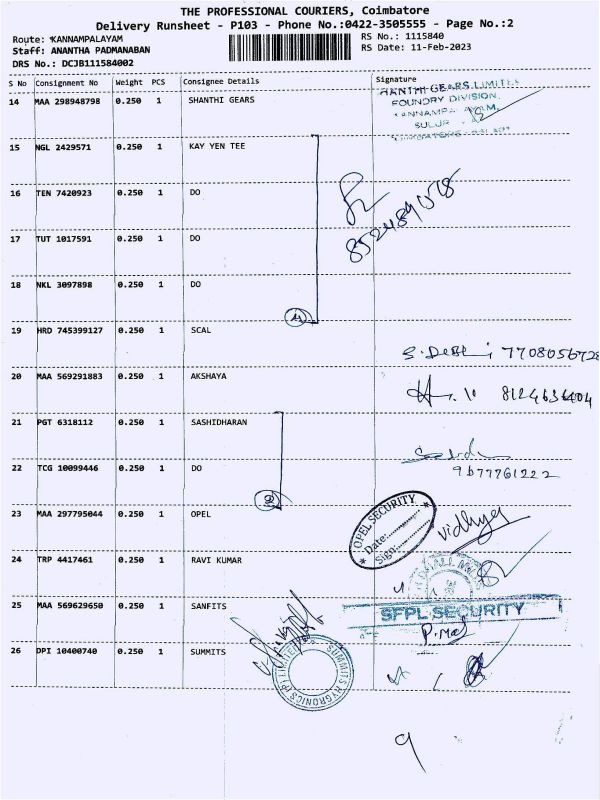 THE PROFESSIONAL COURIERS, Coimbatore
Delivery Runsheet - P103 - Phone No.:0422-3505555 - Page No.:2
Route: *KANNAMPALAYAM
RS No.: 1115840
Staff: ANANTHA PADMANABAN
RS Date: 11-Feb-2023
DRS No.: DCJB111584002
S No Consignment No Weight PCS Consignee Details Signature
14 MAA 298948798 0.250 1 SHANTHI GEARS
GEARS LIMITED
FOUNDRY DIVISION,
SULUR
15 NGL 2429571 0.250 1 KAY YEN TEE
16 TEN 7420923 0.250 1 DO
17 TUT 1017591 0.250 1 DO
18 NKL 3097898 0.250 1 DO
4
19 HRD 745399127 0.250 1 SCAL
7708056728
20 MAA 569291883 0.250 1 AKSHAYA
8124636404
21 PGT 6318112 0.250 1 SASHIDHARAN
22 TCG 10099446 0.250 1 DO
9577761222
2
23 MAA 297795044 0.250 1 OPEL
OPEL SECURITY
Date:
Sign:
Vidhya
24 TRP 4417461 0.250 1 RAVI KUMAR
25 MAA 569629650 0.250 1 SANFITS
SFPL SECURITY
26 DPI 10400740 0.250 1 SUMMITS
SUMMITS HYGRONICS (P) LIMITED
9